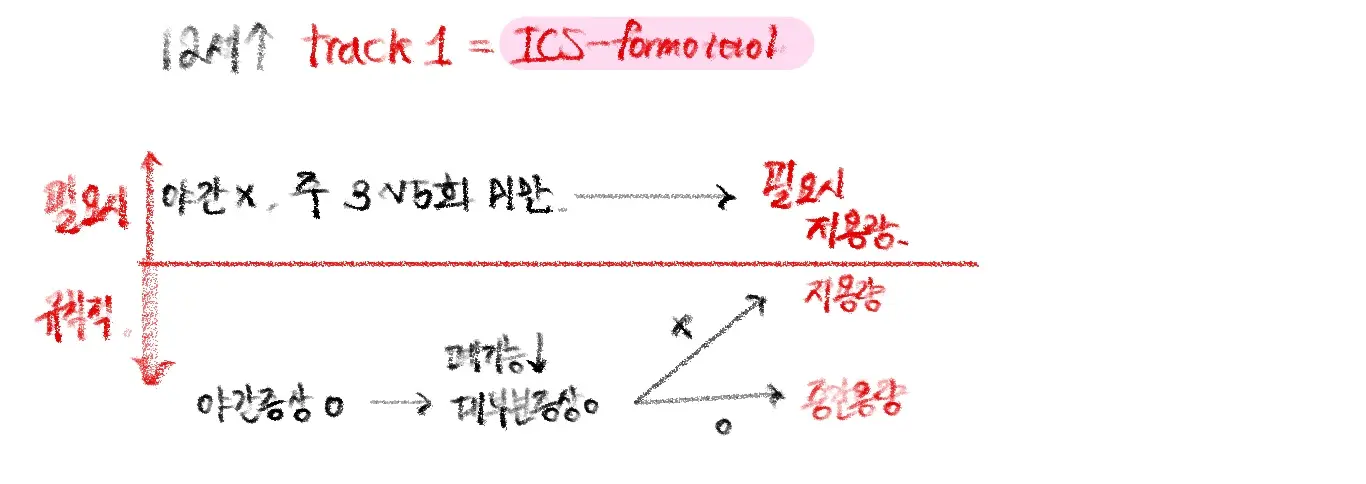 12세↑ track 1 = ICS-formoterol
필요시 야간 x. 주 3~5회 미만. → 필요시
저용량.
규칙적. 저용량
x
폐기능↓
야간증상 o → 대부분증상 o → 중간용량
o